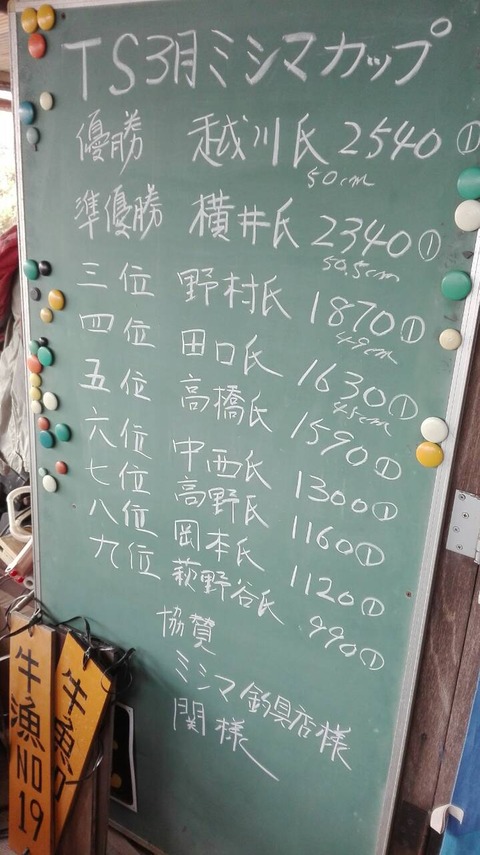 TS3月ミシマカップ
優勝 越川氏 2540 ①
50cm
準優勝 横井氏 2340 ①
50.5cm
三位 野村氏 1870 ①
49cm
四位 田口氏 1630 ①
45cm
五位 高橋氏 1590 ①
六位 中西氏 1300 ①
七位 高野氏 1160 ①
八位 岡本氏 1120 ①
九位 萩野谷氏 990 ①
協賛
ミシマ釣具店様
関様
牛漁NO19
牛漁